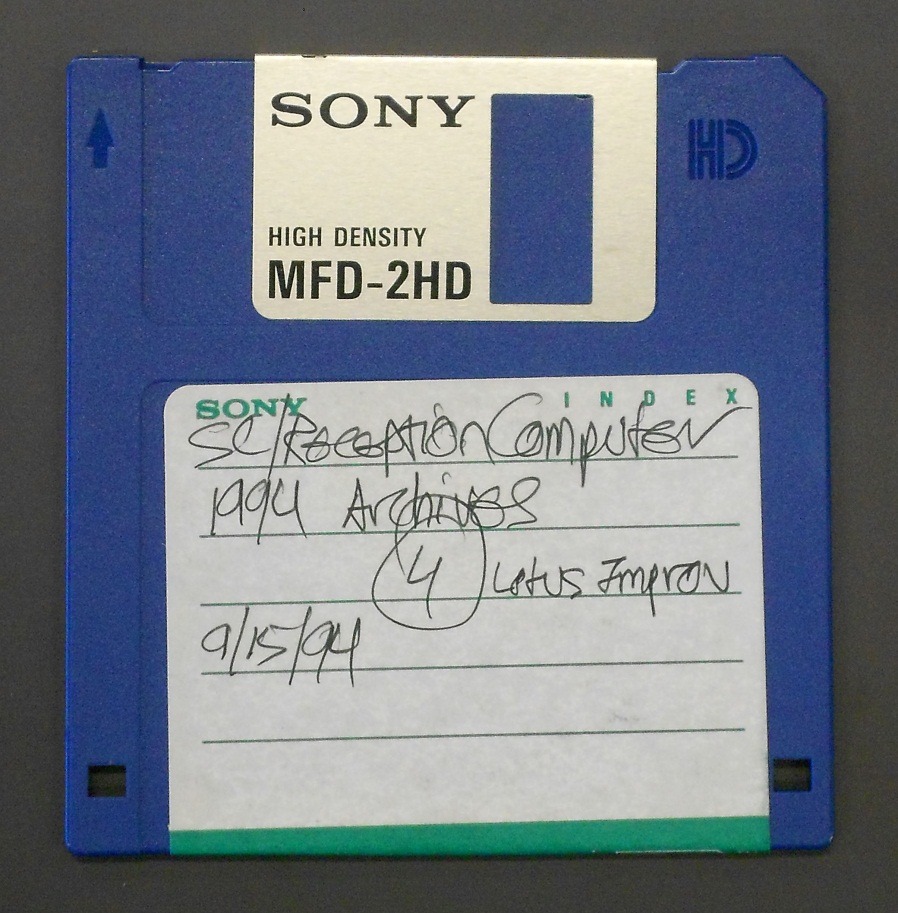 SONY
HD
HIGH DENSITY
MFD-2HD
SONY INDEX
SC/Reception Computer
1994 Archives
4 Lotus Improv
9/15/94